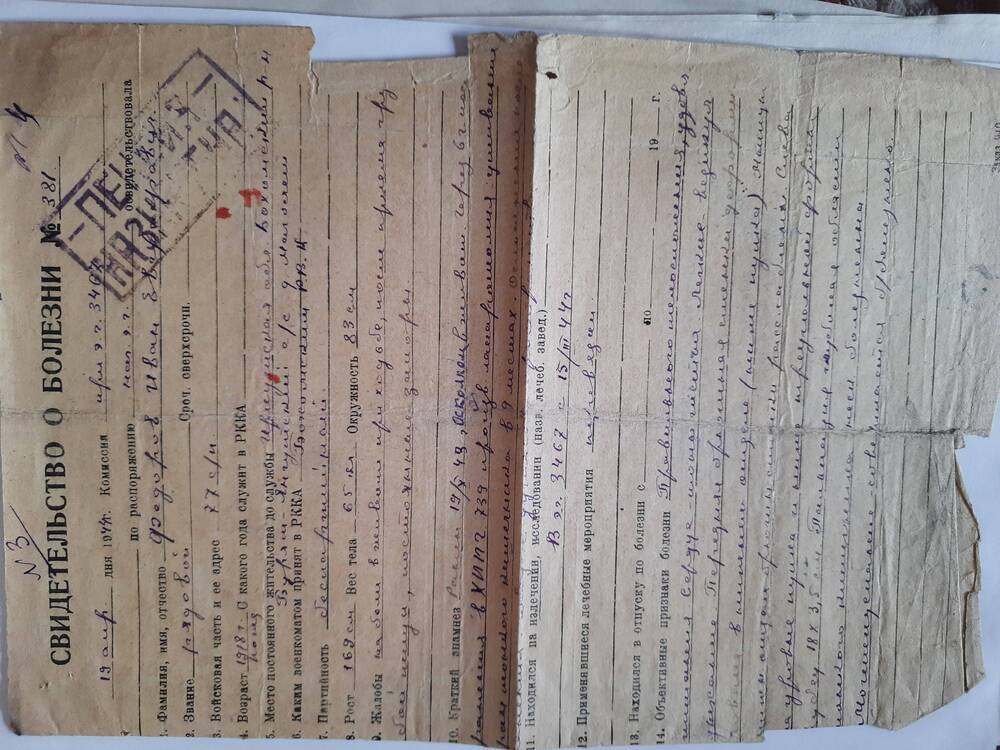 N3
N 4
СВИДЕТЕЛЬСТВО О БОЛЕЗНИ № 381
19 апр. дня 1944г. Комиссия при э.г. 3467
по распоряжению нач. э.г. освидетельствовала
1. Фамилия, имя, отчество Федоров Иван
2. Звание рядовой Сроч. сверхсрочн.
3. Войсковая часть и ее адрес 77 с/п
4. Возраст 1918 г С какого года служит в РККА
5. Место постоянного жительства до службы Иркутская обл. Боханский р-н
с/с д.
6. Каким военкоматом принят в РККА Боханским Р.В.К
7. Партийность беспартийный.
8. Рост 169 см Вес тела 65 кг Окружность 83 см
9. Жалобы на боли в животе при ходьбе, после приема гру
бой пищи, постоянные запоры.
10. Краткий анамнез Ранен 19/ 43, осколком в живот. Через 6 ч. пос
ранения в ХППГ 739 произв. лапаротомия ушивание
ран тонкого кишечника в 9 местах.
11. Находился на излечении, исследовании (назв. лечеб. завед.)
В э.г. 3467 с 15/III 44г
12. Применявшиеся лечебные мероприятия
13. Находился в отпуску по болезни с по 19 г.
14. Объективные признаки болезни Правильного телосложения, удовл.
питания Сердце - тоны чистые Легкие - везикул
дыхание. Передняя брюшная стенка деформи
в нижнем отделе (ниже пупка)
отдел брюшной стенки расслаблен. Слева
на уровне пупка и ниже треугольной формы
рубец 18 X 3,5 см. Пальпация глубокая области
тонкого кишечника болезненна.
Мочеиспускание - совершается б/болезненно
Заказ 910